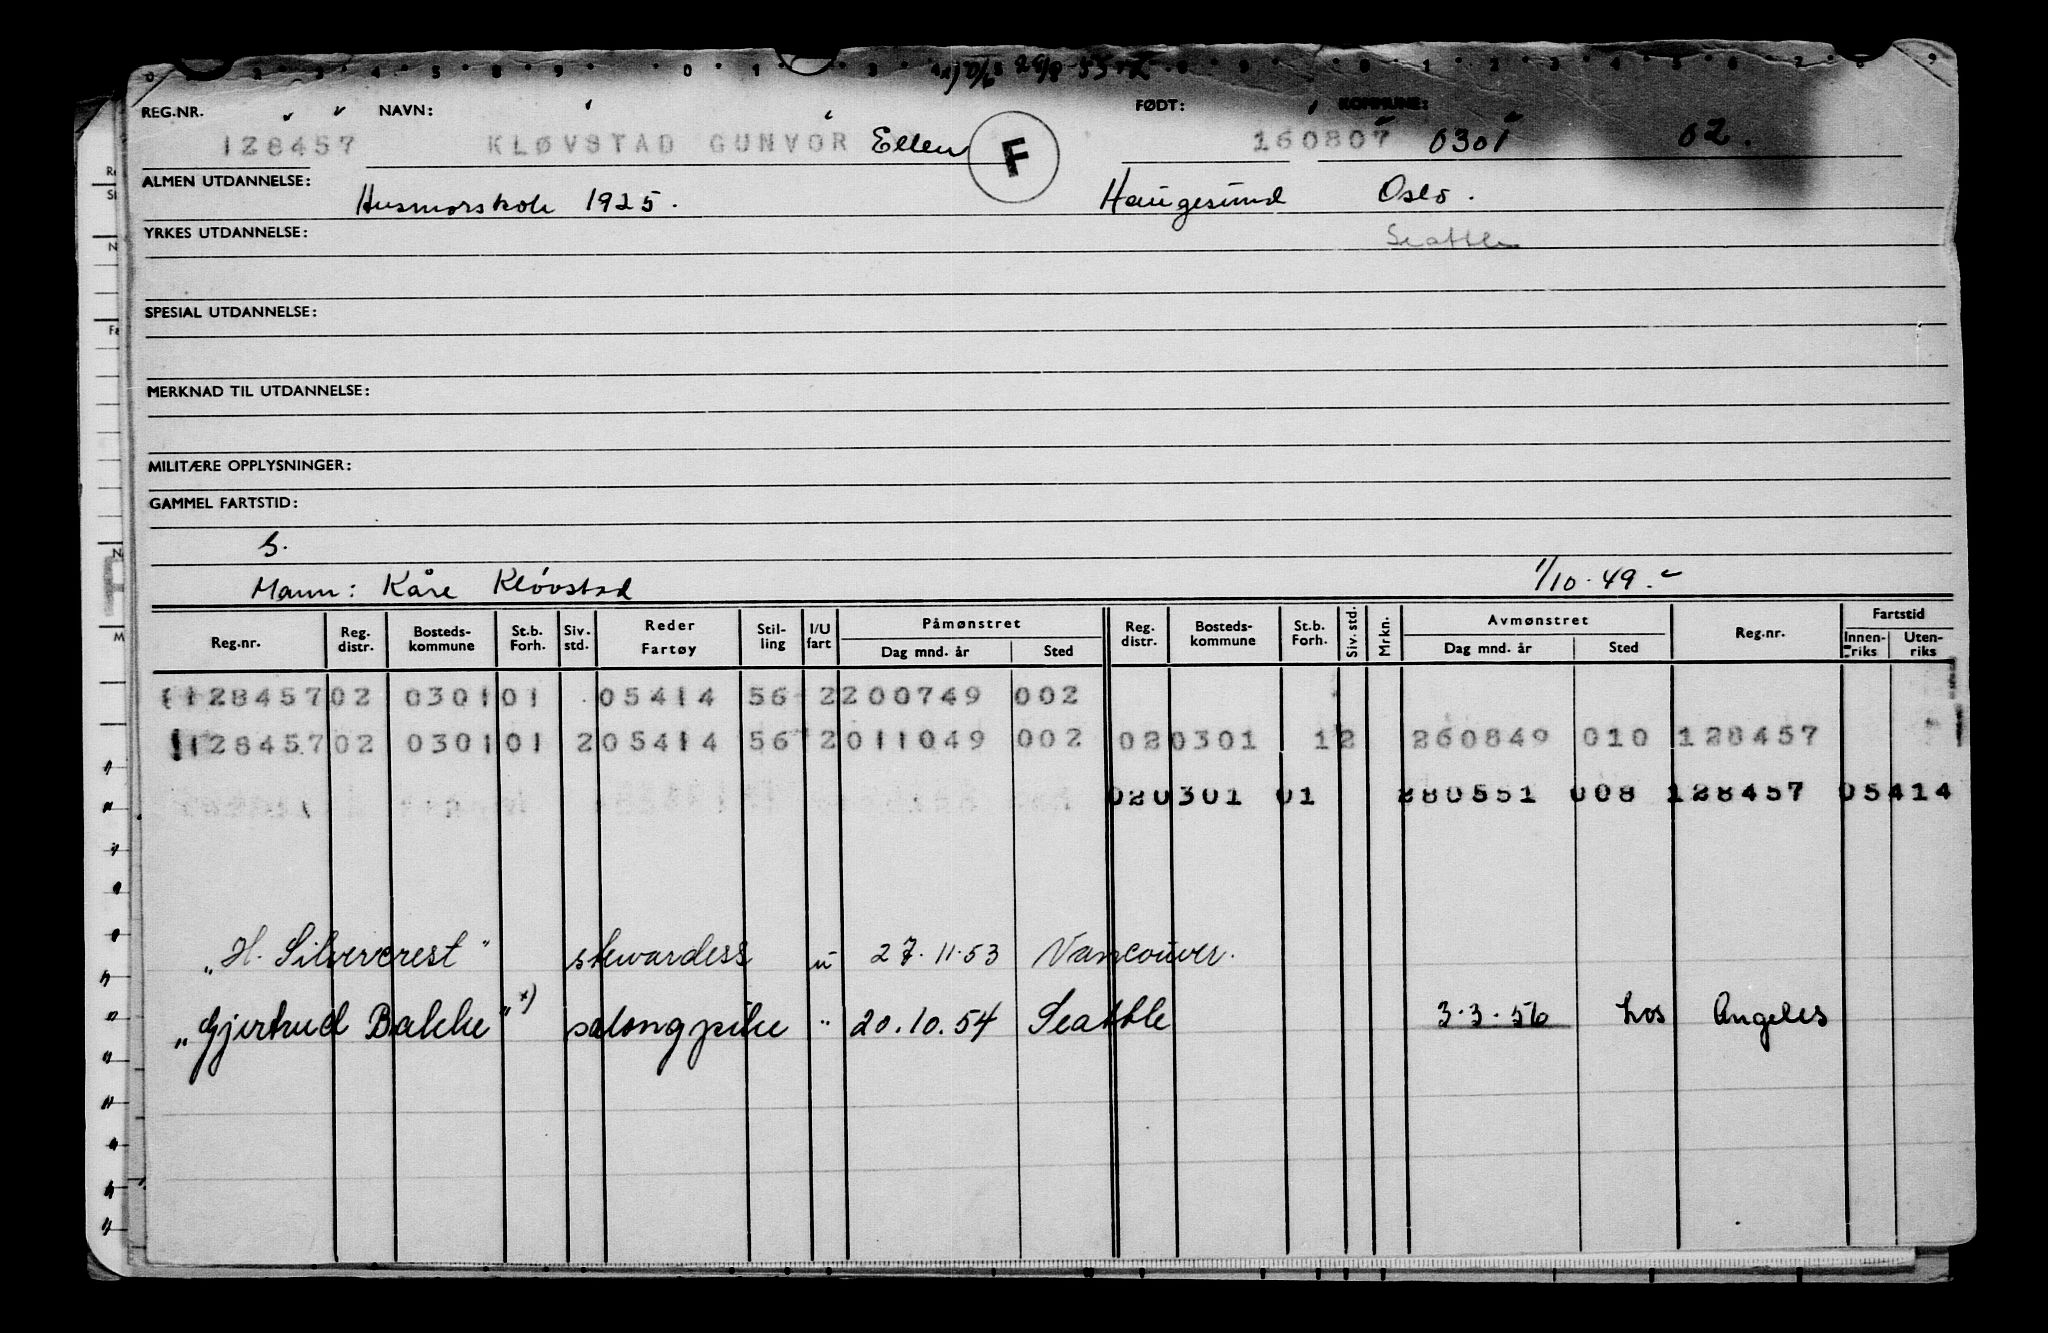 REG.NR. NAVN: FØDT: KOMMUNE:
128457 KLØVSTAD GUNVOR Ellen F 160807 0301 02.
ALMEN UTDANNELSE: Husmorskole 1925. Haugesund Oslo.
YRKES UTDANNELSE: Seattle
SPESIAL UTDANNELSE:
MERKNAD TIL UTDANNELSE:
MILITÆRE OPPLYSNINGER:
GAMMEL FARTSTID:
G.
Mann: Kåre Kløvstad 1/10.49.
Reg.nr. Reg. distr. Bosteds- kommune St.b. Forh. Siv. std. Reder Fartøy Stil- ling I/U fart Påmønstret Dag mnd. år Sted Reg. distr. Bosteds- kommune St.b. Forh. Siv. std. Mrkn. Avmønstret Dag mnd. år Sted Reg.nr. Fartstid Innen- riks Uten- riks
128457 02 0301 01 05414 56 2 200749 002
128457 02 0301 01 2 05414 56 2 011049 002 02 0301 12 260849 010 128457
02 0301 01 280551 008 128457 05414
"H. Silvercrest" stewardess u 27.11.53 Vancouver.
"Gjertrud Bakke" x) salongpike " 20.10.54 Seattle 3.3.56 Los Angeles